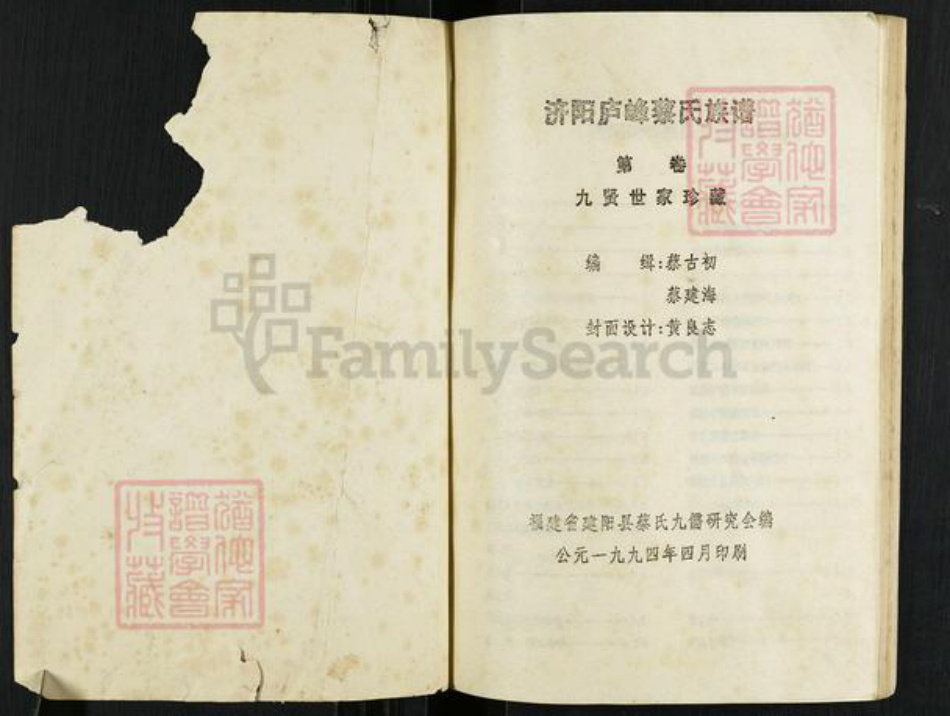 济阳庐峰蔡氏族谱
第 卷
九贤世家珍藏
编 辑:蔡古初
蔡建海
封面设计:黄良志
FamilySearch
福建省建阳县蔡氏九儒研究会编
公元一九九四年四月印刷
猶他家
譜學會
特藏
猶他家
譜學會
特藏